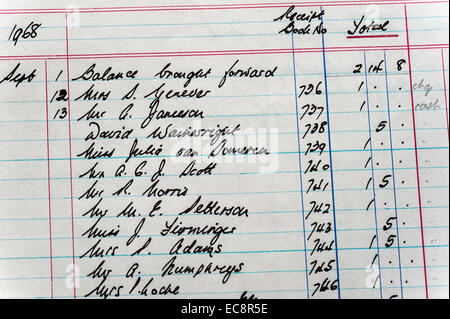 1968 Receipt Book No Total
Sept 1 Balance brought forward 2 14 8
12 Mrs D. Genever 736 1 . . chq
13 Mr A. Jameson 737 1 . . cash
David Wainwright 738 5 .
Miss Julia van Someren 739 1 . .
Mr A. C. J. Scott 740 1 . .
Mr R. Norris 741 1 5 .
Mr M. E. Setterson 742 1 . .
Miss J. Firminger 743 5 .
Mrs P. Adams 744 1 5 .
Mr A. Humphreys 745 1 . .
Mrs P. Roche 746 1 . .
5
alamy
EC8R5E
www.alamy.com